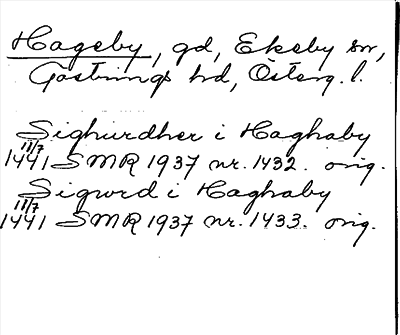 Hageby, gd, Ekeby sn,
Göstrings hd, Österg. l.
Sighurdher i Haghaby
11/7
1441 SMR 1937 nr. 1432. orig.
Sigurd i Haghaby
11/7
1441 SMR 1937 nr. 1433. orig.